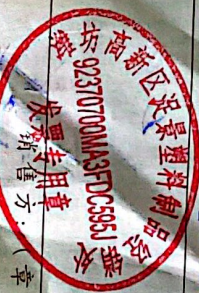 潍坊高新区泥景塑料制品经营处
92370700MA3FDC595L
发票专用章
销售方：（章